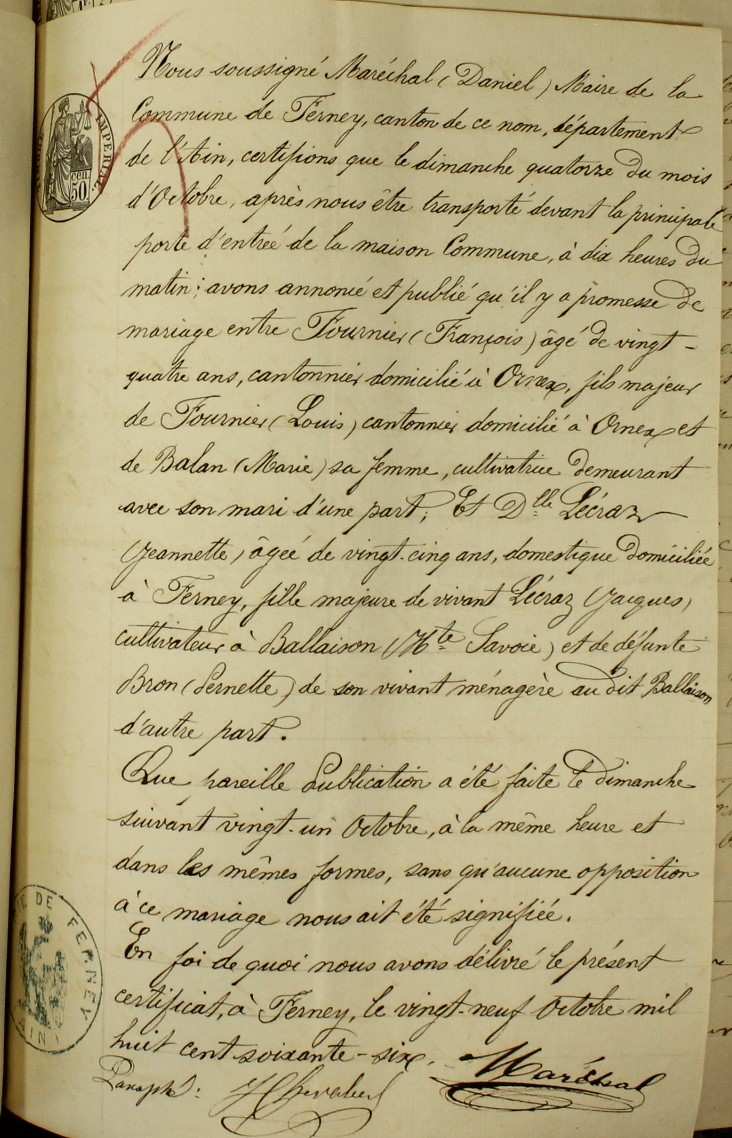 Nous soussigné Maréchal (Daniel) Maire de la
Commune de Ferney, canton de ce nom, département
de l'Ain, certifions que le dimanche quatorze du mois
d'Octobre, après nous être transporté devant la principale
porte d'entrée de la maison Commune, à dix heures du
matin; avons annoncé et publié qu'il y a promesse de
mariage entre Fournier (François) âgé de vingt-
quatre ans, cantonnier domicilié à Ornex, fils majeur
de Fournier (Louis) cantonnier domicilié à Ornex et
de Balan (Marie) sa femme, cultivatrice demeurant
avec son mari d'une part; Et Dlle Lécraz
(Jeannette) âgée de vingt-cinq ans, domestique domiciliée
à Ferney, fille majeure de vivant Lécraz (Jacques)
cultivateur à Ballaison (Hte Savoie) et de défunte
Bron (Pernette) de son vivant ménagère au dit Ballaison
d'autre part.
Que pareille Publication a été faite le dimanche
suivant vingt-un Octobre, à la même heure et
dans les mêmes formes, sans qu'aucune opposition
à ce mariage nous ait été signifiée.
En foi de quoi nous avons délivré le présent
certificat, à Ferney, le vingt-neuf Octobre mil
huit cent soixante-six.
Maréchal
Paraphé:
IMPERIAL
50 CEN.
DE FERNEY
AIN